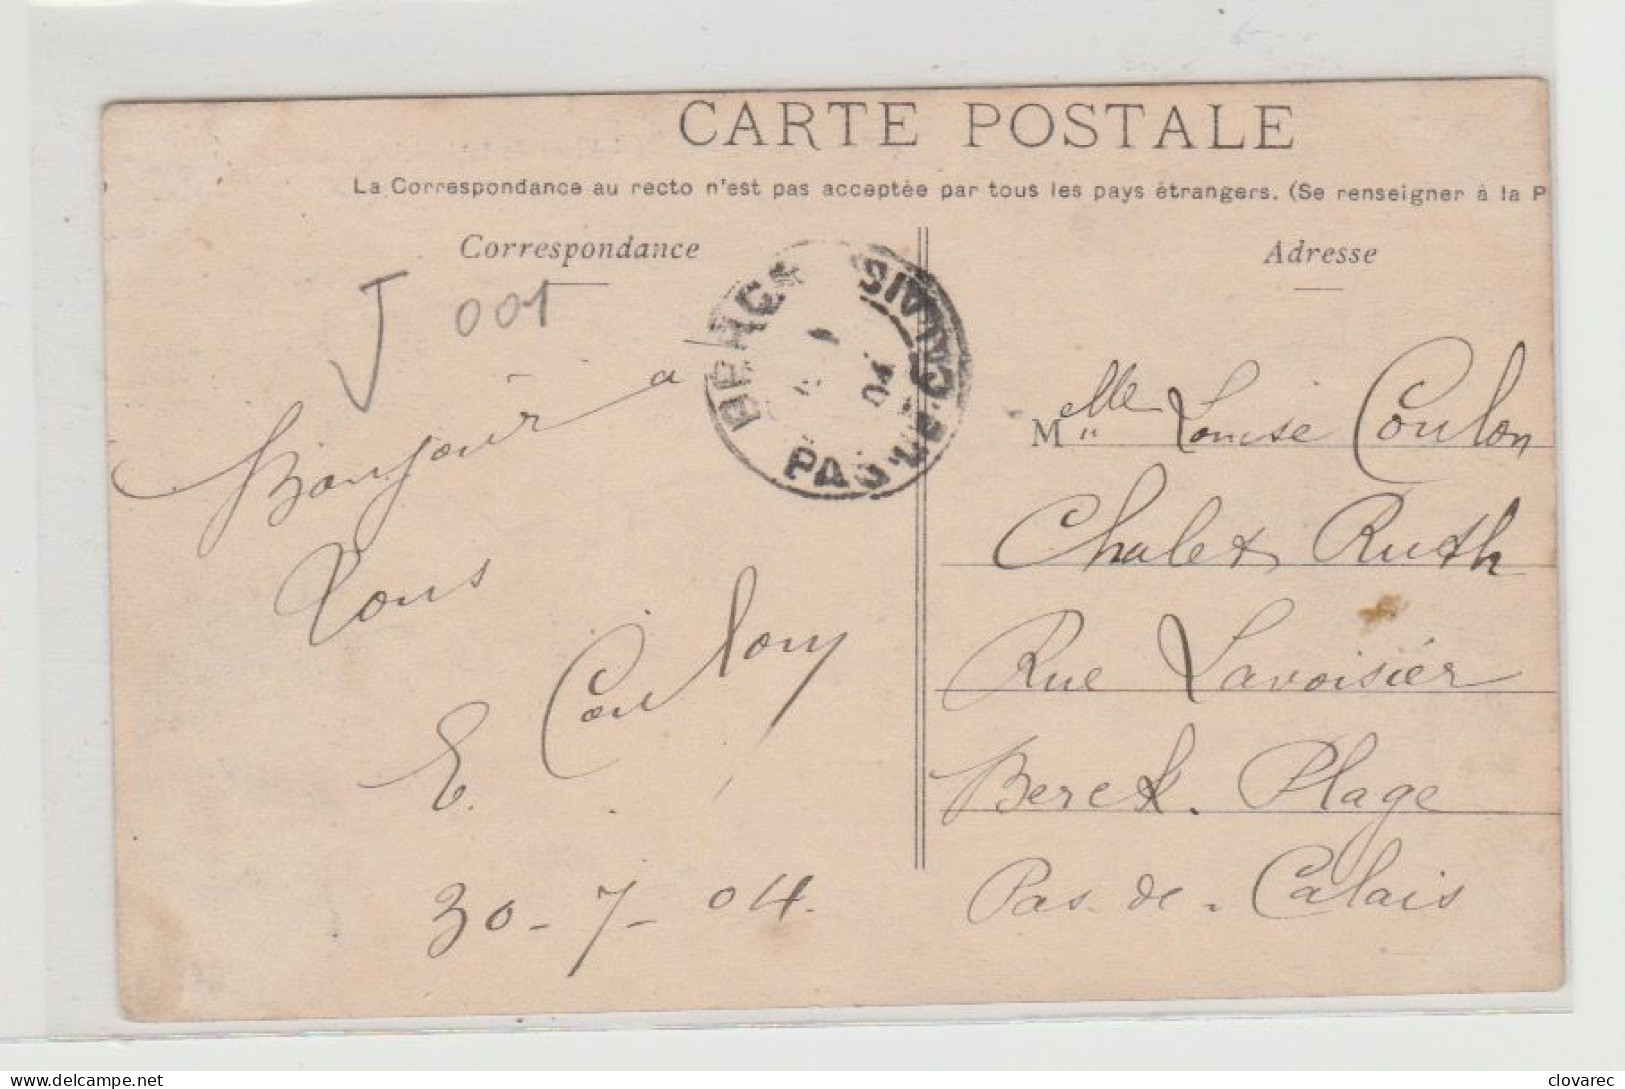 CARTE POSTALE
La Correspondance au recto n'est pas acceptée par tous les pays étrangers. (Se renseigner à la P
Correspondance
Adresse
J 001
BERCK
PAS-DE-CALAIS
04
Bonjour à
Tous
E. Coulon
30-7-04.
Melle Louise Coulon
Chalet Ruth
Rue Lavoisier
Berck. Plage
Pas-de-Calais
clovarec